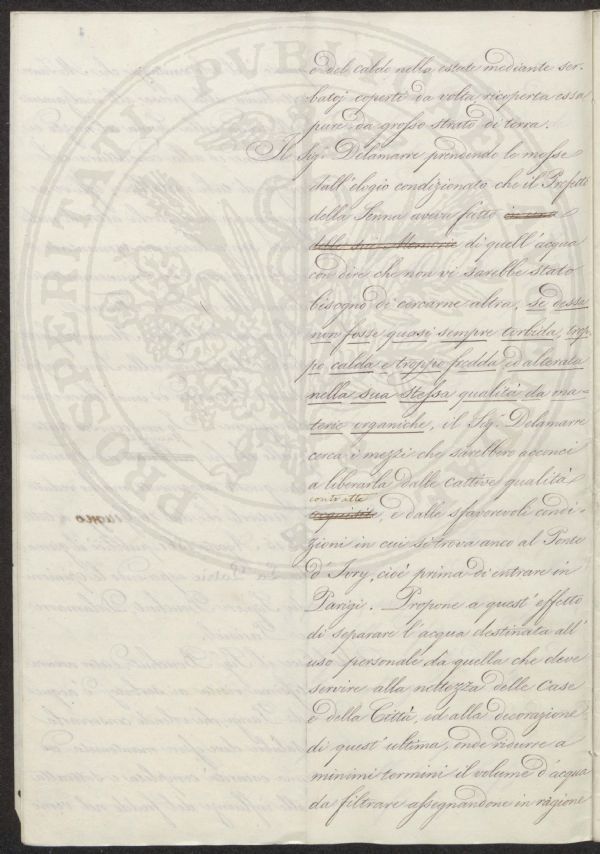 e del caldo nella estate mediante ser-
batoj coperti da volta ricoperta essa
pure da grosso strato di terra.
Il Sig.r Delamarre prendendo le mosse
dall'elogio condizionato che il Prefetto
della Senna aveva fatto in una
delle sue Memorie di quell'acqua
con dire che non vi sarebbe stato
bisogno di cercarne altra, se dessa
non fosse quasi sempre torbida, trop-
po calda e troppo fredda ed alterata
nella sua stessa qualità da ma-
terie organiche, il Sig.r Delamarre
cerca i mezzi che sarebbero acconci
a liberarla dalle cattive qualità
contratte
acquisite, e dalle sfavorevoli condi-
zioni in cui si trova anco al Ponte
d'Ivry, cioè prima di entrare in
Parigi. Propone a quest'effetto
di separare l'acqua destinata all'
uso personale da quella che deve
servire alla nettezza delle Case
e della Città, ed alla decorazione
di quest'ultima, onde ridurre a
minimi termini il volume d'acqua
da filtrare assegnandone in ragione
PROSPERITATI PUBLI